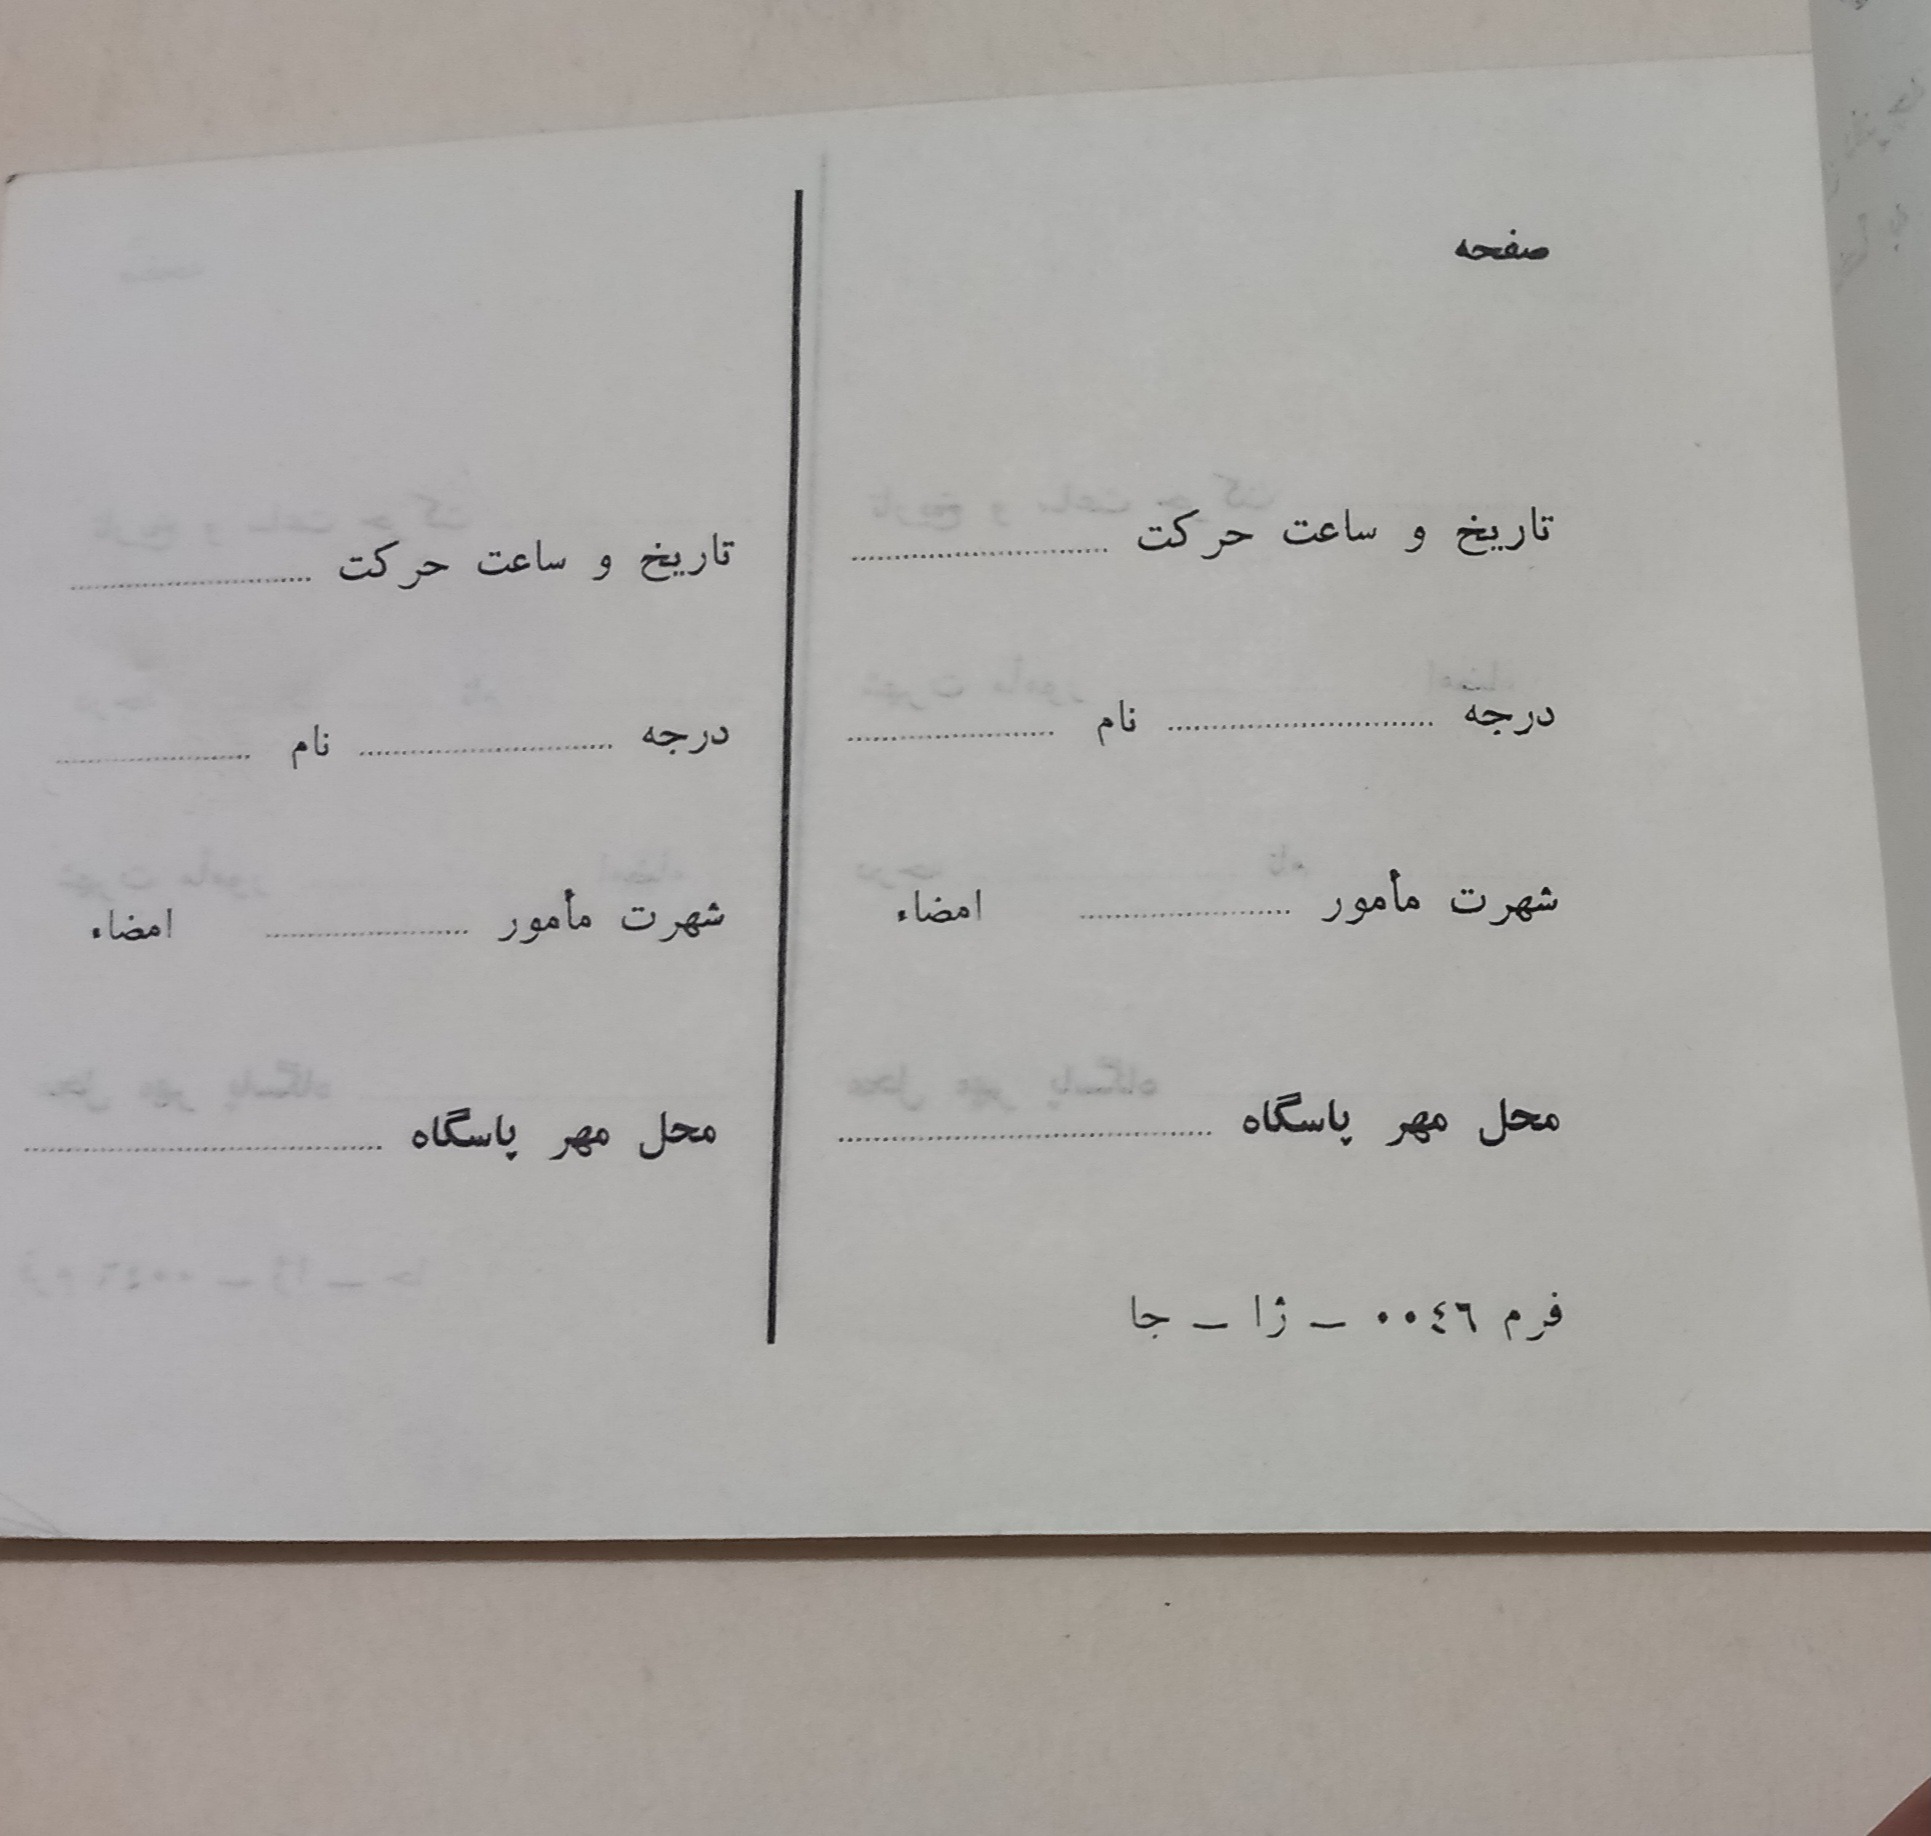 صفحه
تاریخ و ساعت حرکت ........................
درجه ........................ نام ........................
شهرت مأمور ........................ امضاء
محل مهر پاسگاه ........................
فرم ٠٠٤٦ ـ ژا ـ جا
تاریخ و ساعت حرکت ........................
درجه ........................ نام ........................
شهرت مأمور ........................ امضاء
محل مهر پاسگاه ........................